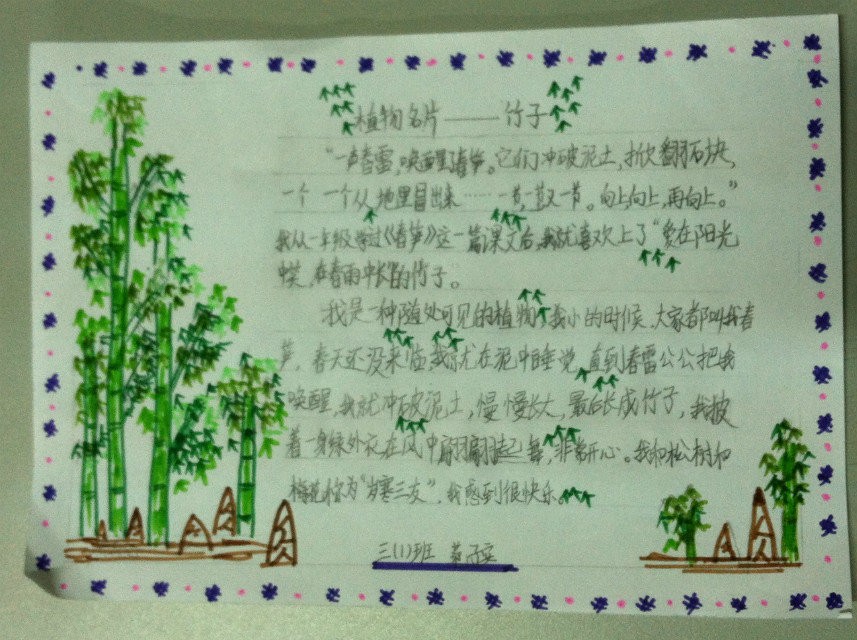 植物名片——竹子
“一声春雷,唤醒了春笋。它们冲破泥土,掀翻石块,
一个一个从地里冒出来……一节,一节又一节。向上,向上,再向上。”
我从一年级学过《春笋》这一篇课文后,我就喜欢上了“象在阳光
中笑,在春雨中长”的竹子。
我是一种随处可见的植物,我小的时候,大家都叫我春
笋,春天还没来临,我就在泥中睡觉,直到春雷公公把我
唤醒,我就冲破泥土,慢慢长大,最后长成竹子,我披
着一身绿外衣在风中翩翩起舞,非常开心。我和松树和
梅花称为“岁寒三友”,我感到很快乐。
三(1)班